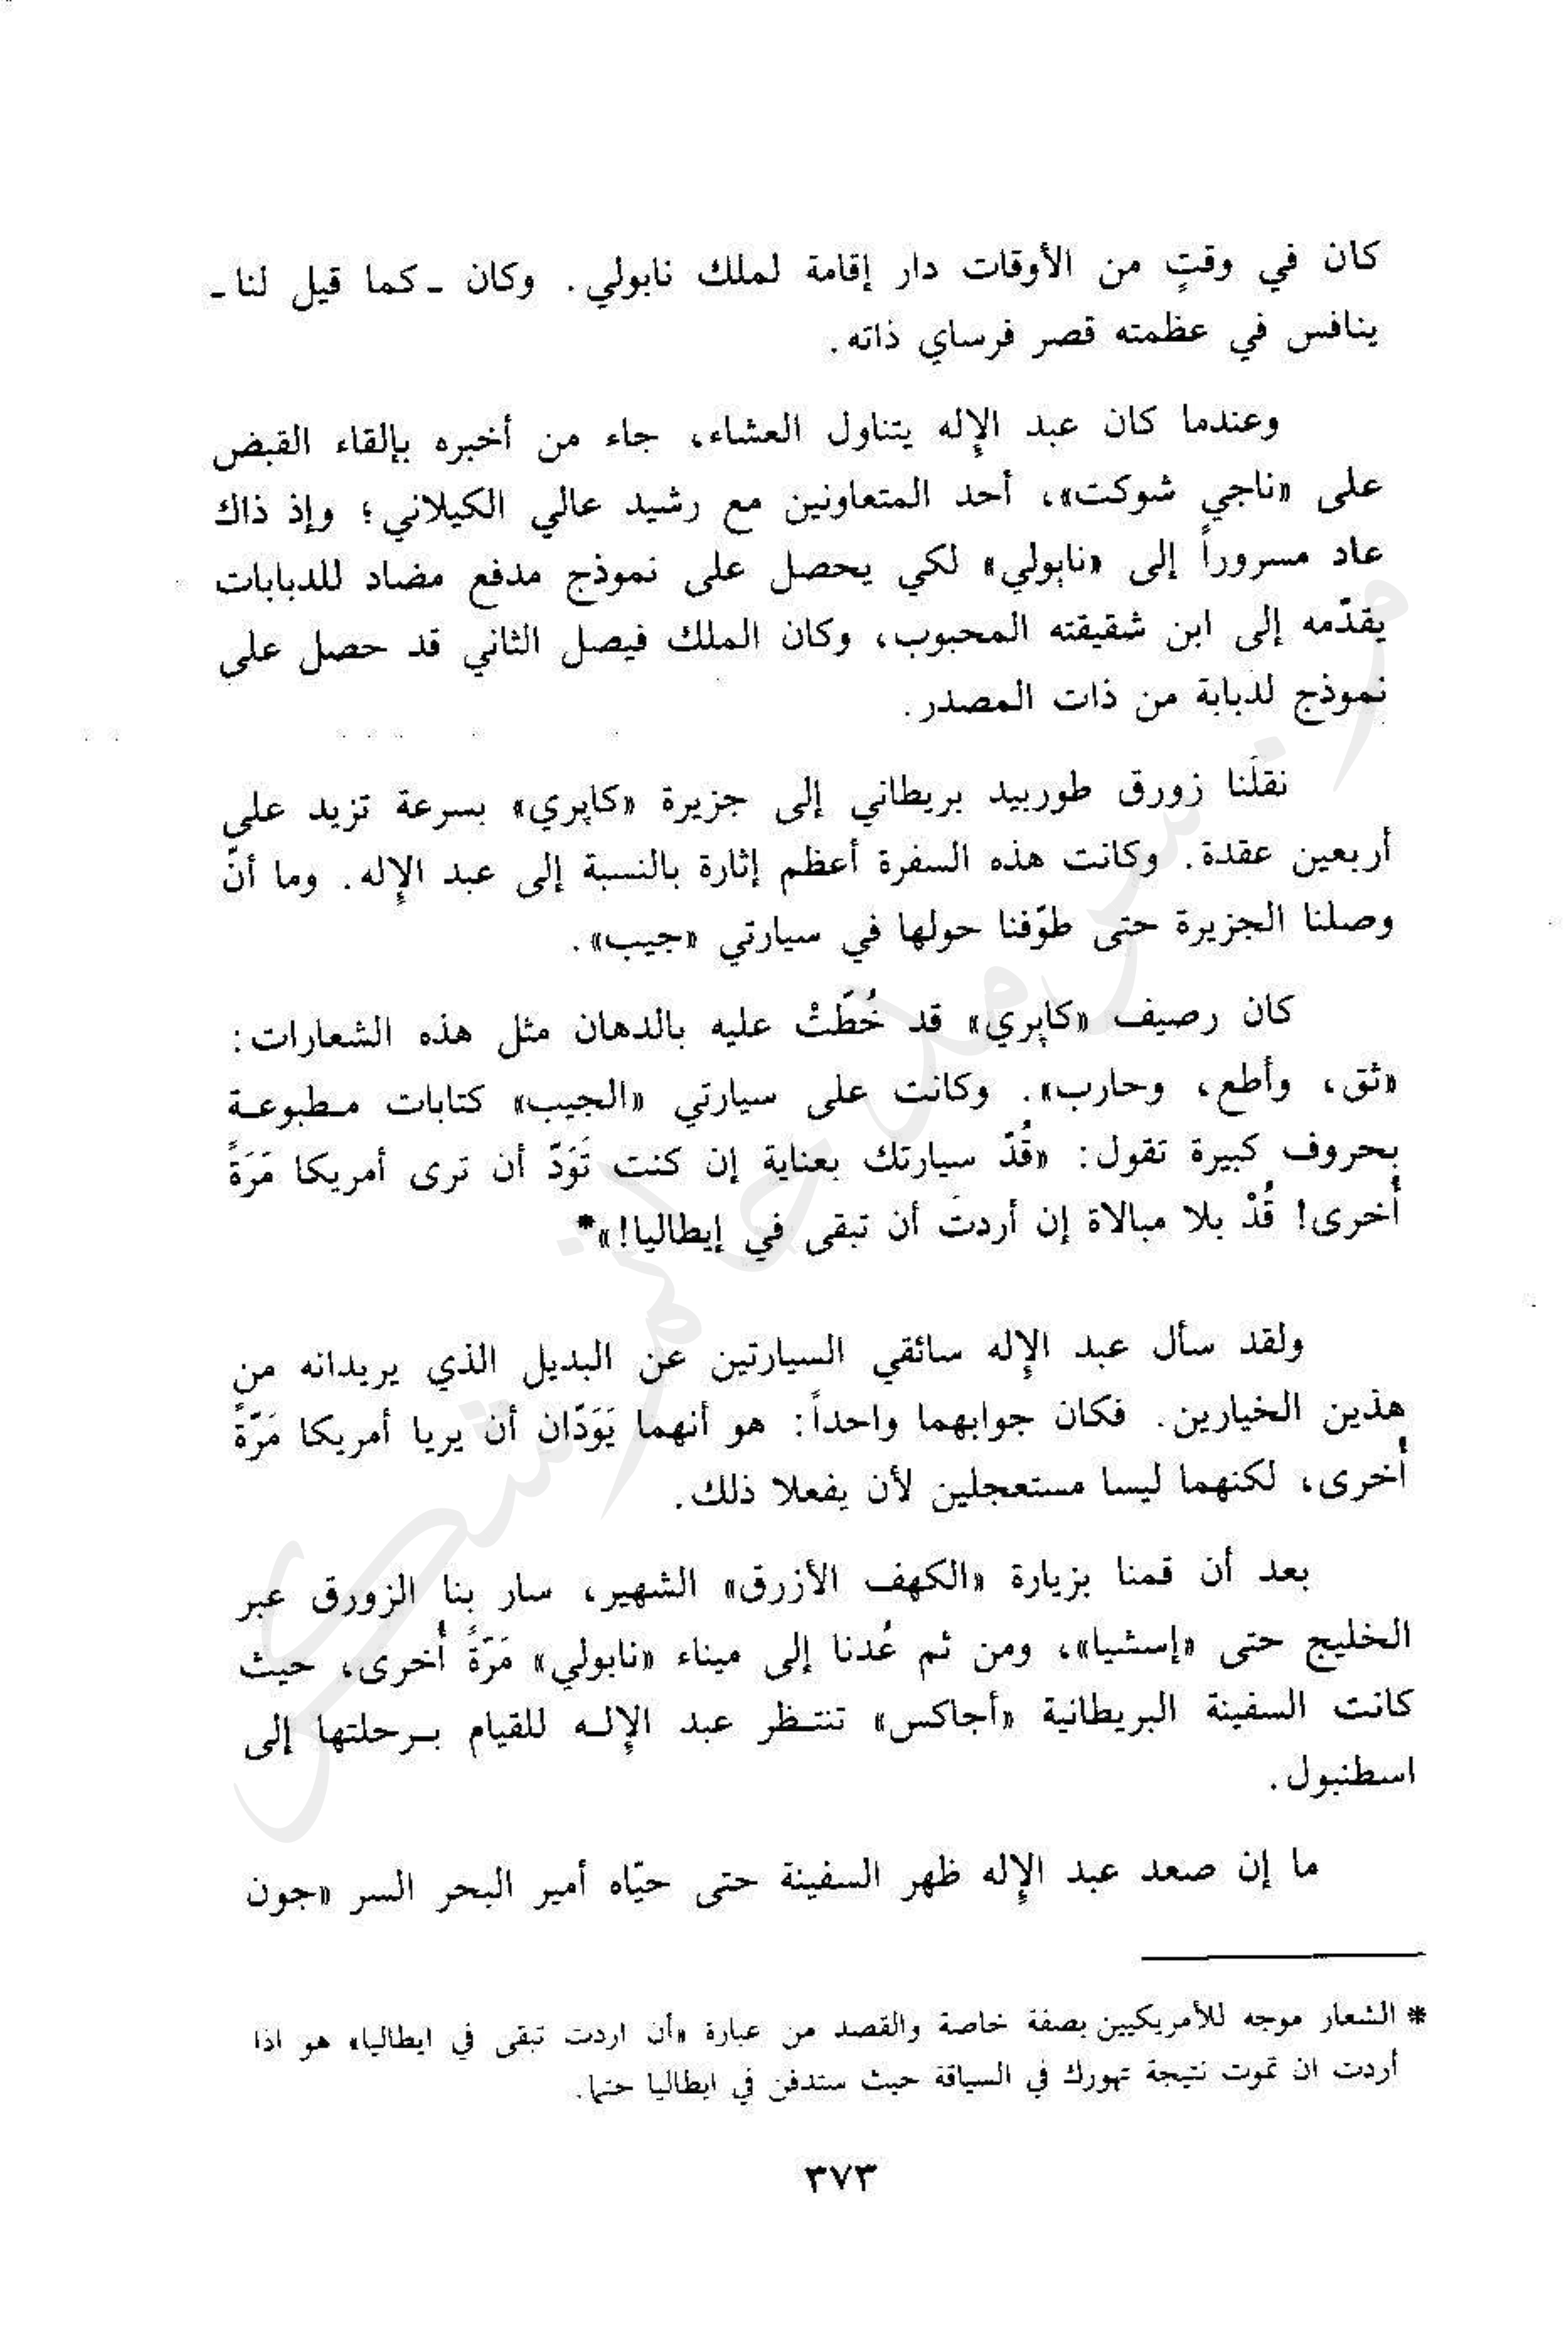 كان في وقتٍ من الأوقات دار إقامة لملك نابولي. وكان ـ كما قيل لنا ـ
ينافس في عظمته قصر فرساي ذاته.
وعندما كان عبد الإِله يتناول العشاء، جاء من أخبره بإلقاء القبض
على «ناجي شوكت»، أحد المتعاونين مع رشيد عالي الكيلاني؛ وإذ ذاك
عاد مسروراً إلى «نابولي» لكي يحصل على نموذج مدفع مضاد للدبابات
يقدّمه إلى ابن شقيقته المحبوب، وكان الملك فيصل الثاني قد حصل على
نموذج لدبابة من ذات المصدر.
نقلَنا زورق طوربيد بريطاني إلى جزيرة «كاپري» بسرعة تزيد على
أربعين عقدة. وكانت هذه السفرة أعظم إثارة بالنسبة إلى عبد الإِله. وما أنّ
وصلنا الجزيرة حتى طوّفنا حولها في سيارتي «جيب».
كان رصيف «كاپري» قد خُطَّتْ عليه بالدهان مثل هذه الشعارات:
«ثق، وأطع، وحارب». وكانت على سيارتي «الجيب» كتابات مطبوعة
بحروف كبيرة تقول: «قُدّ سيارتك بعناية إن كنت تَوَدّ أن ترى أمريكا مَرَةً
أُخرى! قُدْ بلا مبالاة إن أردتَ أن تبقى في إيطاليا!»*
ولقد سأل عبد الإِله سائقي السيارتين عن البديل الذي يريدانه من
هذين الخيارين. فكان جوابهما واحداً: هو أنهما يَوَدّان أن يريا أمريكا مَرّةً
أُخرى، لكنهما ليسا مستعجلين لأن يفعلا ذلك.
بعد أن قمنا بزيارة «الكهف الأزرق» الشهير، سار بنا الزورق عبر
الخليج حتى «إسشيا»، ومن ثم عُدنا إلى ميناء «نابولي» مَرّةً أُخرى، حيث
كانت السفينة البريطانية «أجاكس» تنتظر عبد الإِله للقيام برحلتها إلى
اسطنبول.
ما إن صعد عبد الإِله ظهر السفينة حتى حيّاه أمير البحر السر «جون
* الشعار موجه للأمريكيين بصفة خاصة والقصد من عبارة «أن اردت تبقى في ايطاليا» هو اذا
أردت ان تموت نتيجة تهورك في السياقة حيث ستدفن في ايطاليا حتما.
٣٧٣